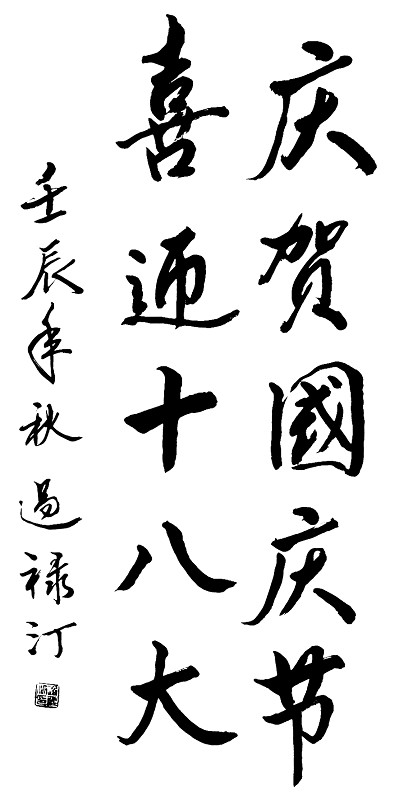 庆贺國庆节
喜迎十八大
壬辰年秋过禄汀